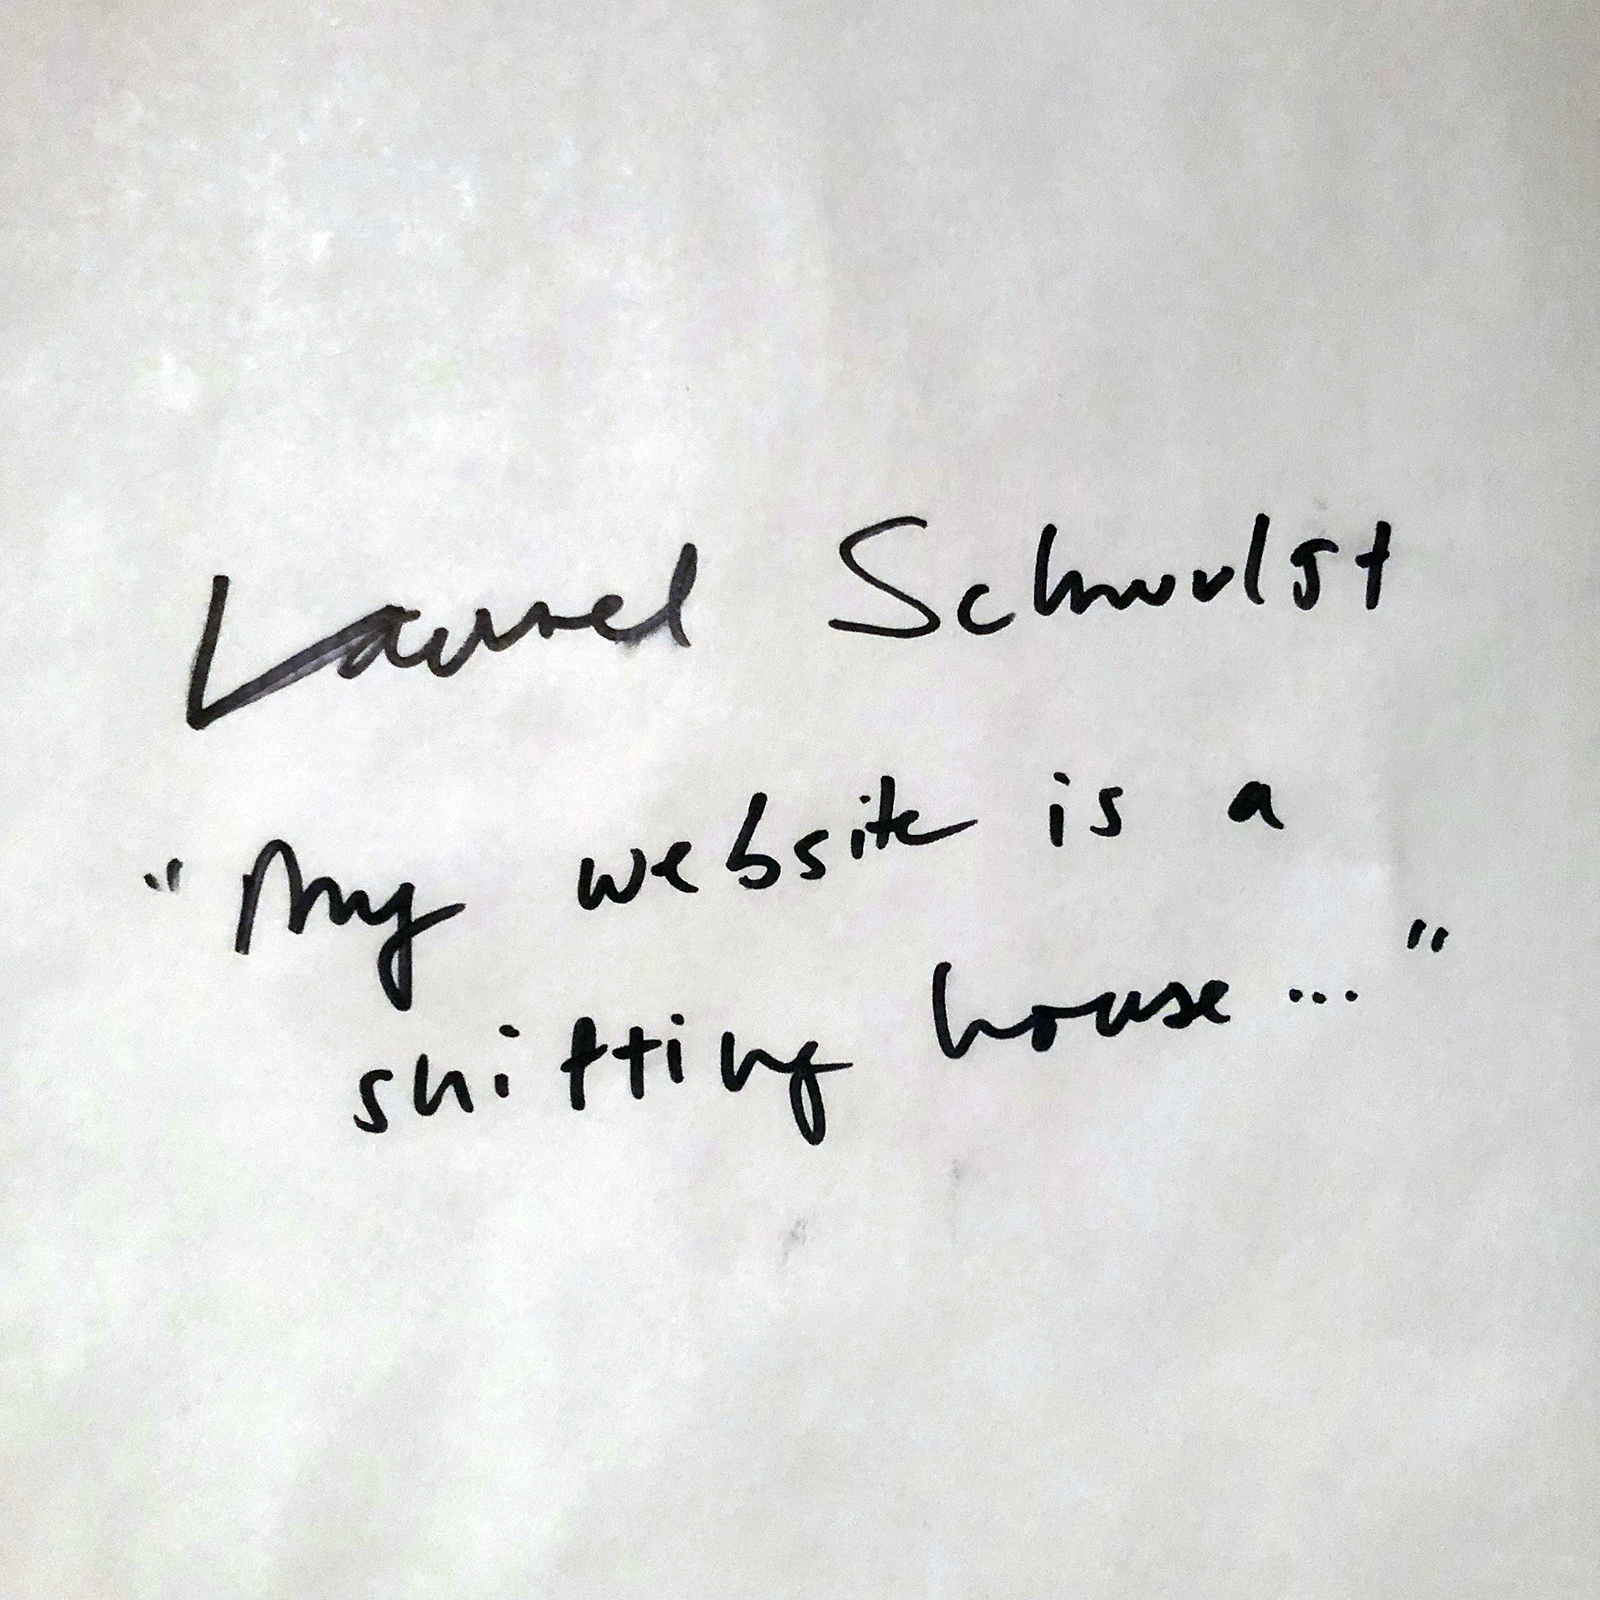 Laurel Schwulst
"My website is a
shifting house..."